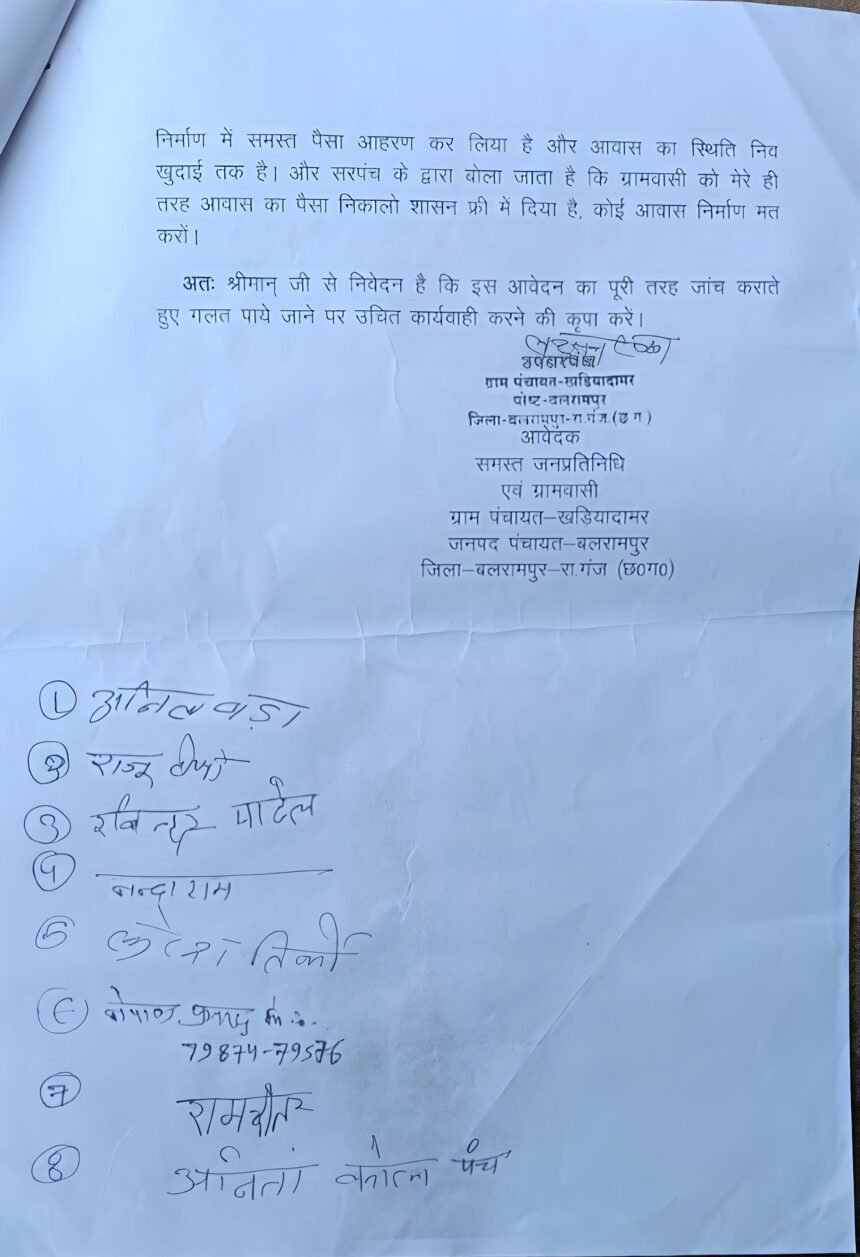 निर्माण में समस्त पैसा आहरण कर लिया है और आवास का स्थिति निव
खुदाई तक है। और सरपंच के द्वारा बोला जाता है कि ग्रामवासी को मेरे ही
तरह आवास का पैसा निकालो शासन फ्री में दिया है, कोई आवास निर्माण मत
करों।
अतः श्रीमान् जी से निवेदन है कि इस आवेदन का पूरी तरह जांच कराते
हुए गलत पाये जाने पर उचित कार्यवाही करने की कृपा करें।
ग्राम पंचायत-खडियादामर
पोष्ट-बलरामपुर
जिला-बलरामपुर-रा.गंज.(छ ग)
आवेदक
समस्त जनप्रतिनिधि
एवं ग्रामवासी
ग्राम पंचायत–खड़ियादामर
जनपद पंचायत–बलरामपुर
जिला–बलरामपुर–रा.गंज (छ0ग0)
1 अनिल
2 राजू
3 रविन्द्र पाटेल
4 नन्दा राम
5 तिर्की
6
79874-79576
7 रामऔतर
8 अनिता पंच